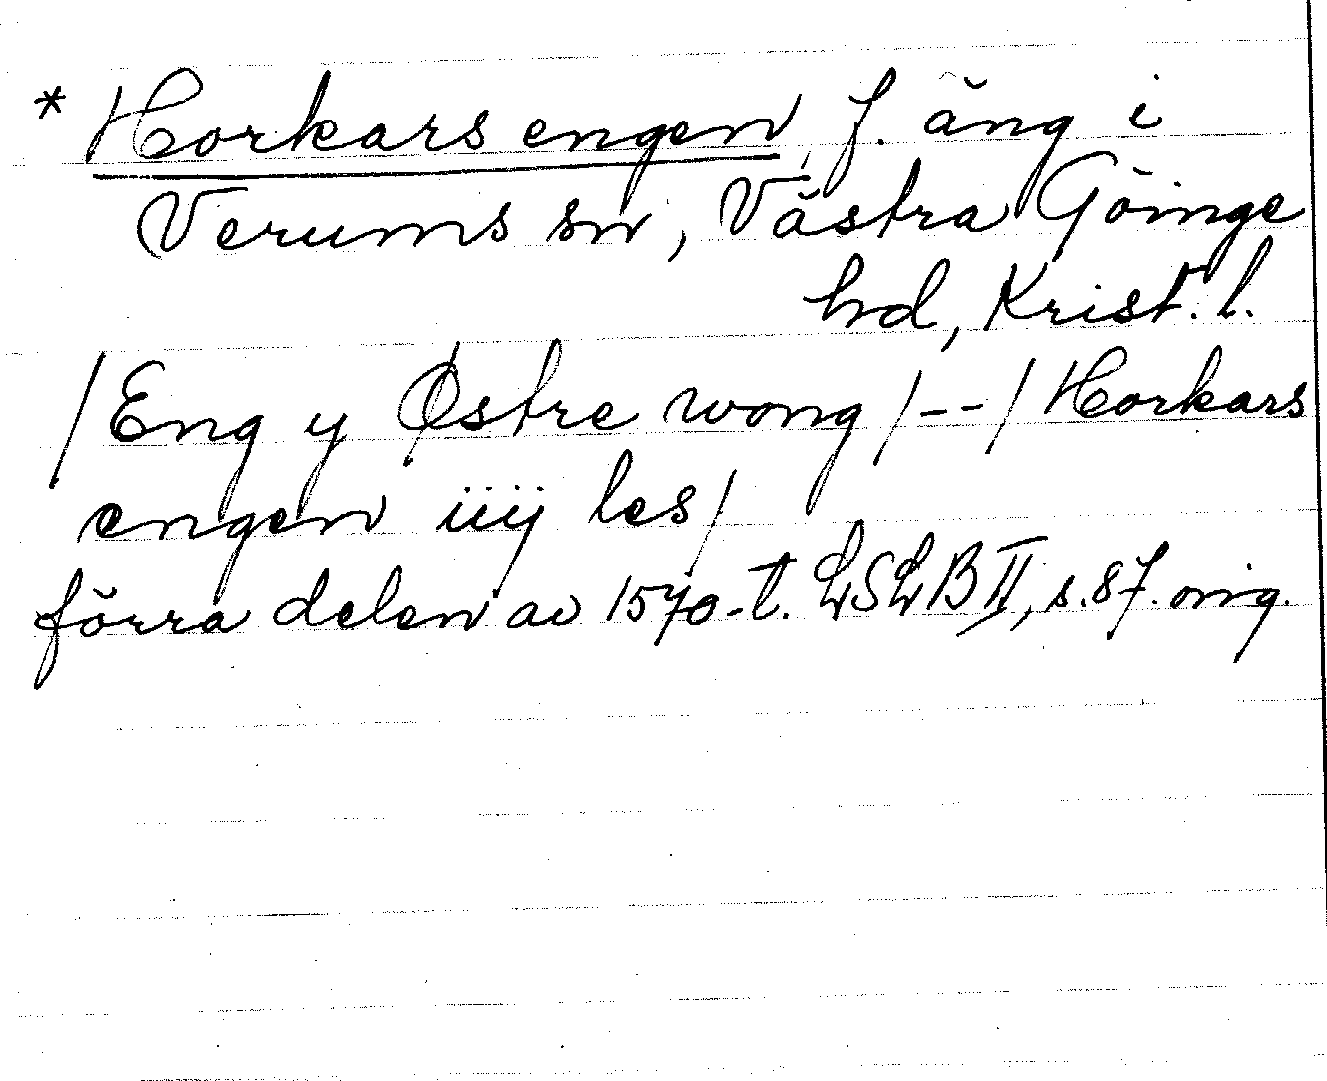 * Horkars engen, f. äng i
Verums sn, Västra Göinge
hd, Krist. l.
/Eng y Østre wong/--/Horkars
engen iiij les/
förra delen av 1570-t. LSLB II, s. 87. orig.